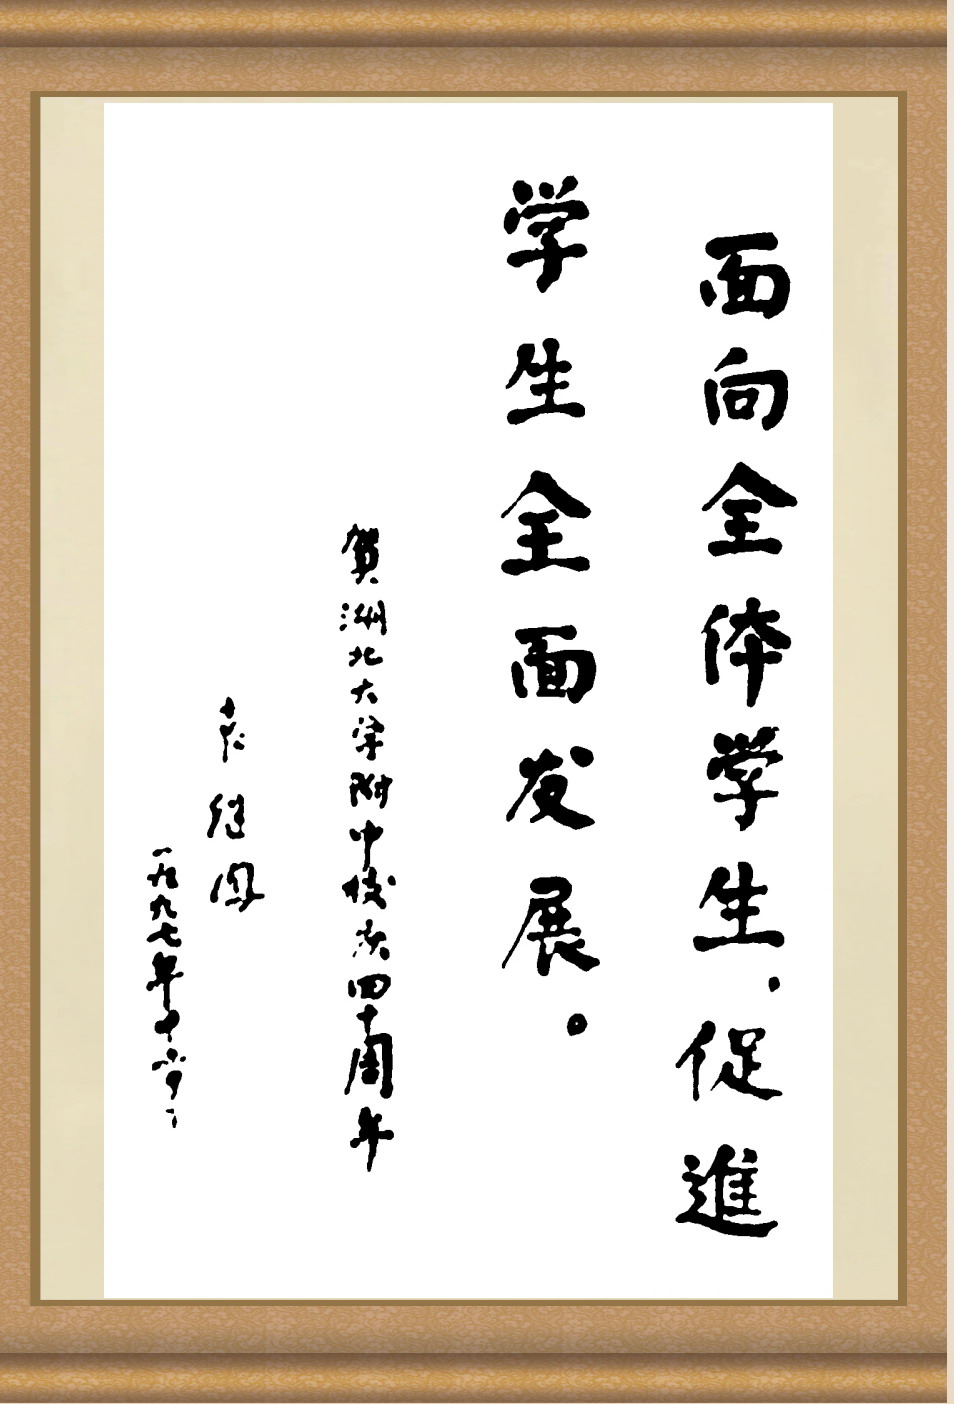 面向全体学生，促進
学生全面发展。
賀湖北大学附中校庆四十周年
袁继凤
一九九七年十